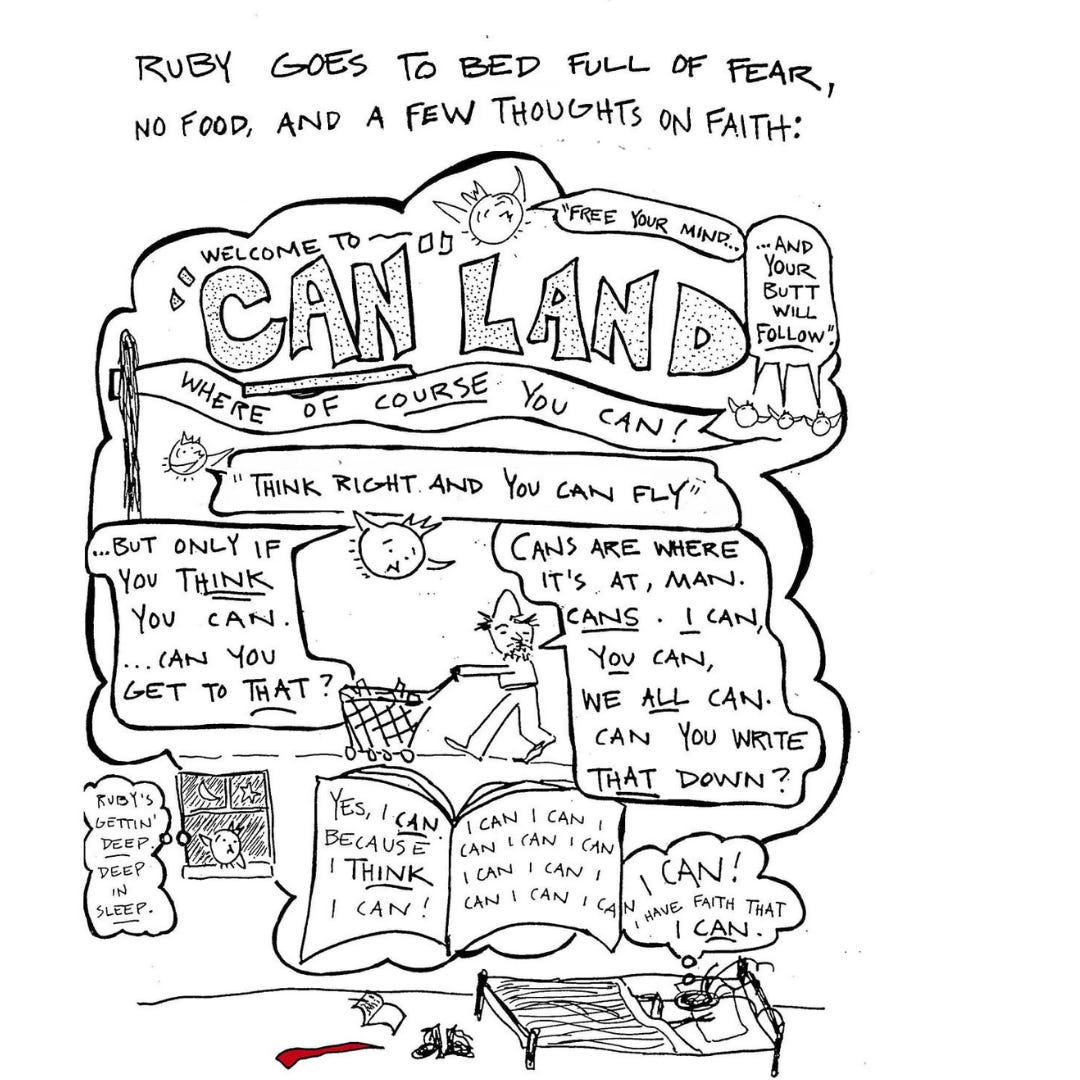 RUBY GOES TO BED FULL OF FEAR,
NO FOOD, AND A FEW THOUGHTS ON FAITH:
"FREE YOUR MIND...
...AND
YOUR
BUTT
WILL
FOLLOW".
WELCOME TO
"CAN" LAND
WHERE OF COURSE YOU CAN!
"THINK RIGHT AND YOU CAN FLY"
...BUT ONLY IF
YOU THINK
YOU CAN.
...CAN YOU
GET TO THAT?
CANS ARE WHERE
IT'S AT, MAN.
CANS. I CAN,
YOU CAN,
WE ALL CAN.
CAN YOU WRITE
THAT DOWN?
RUBY'S
GETTIN'
DEEP.
DEEP
IN
SLEEP.
YES, I CAN
BECAUSE
I THINK
I CAN!
I CAN I CAN I
CAN I CAN I CAN
I CAN I CAN I
CAN I CAN I CAN
I CAN!
I HAVE FAITH THAT
I CAN.